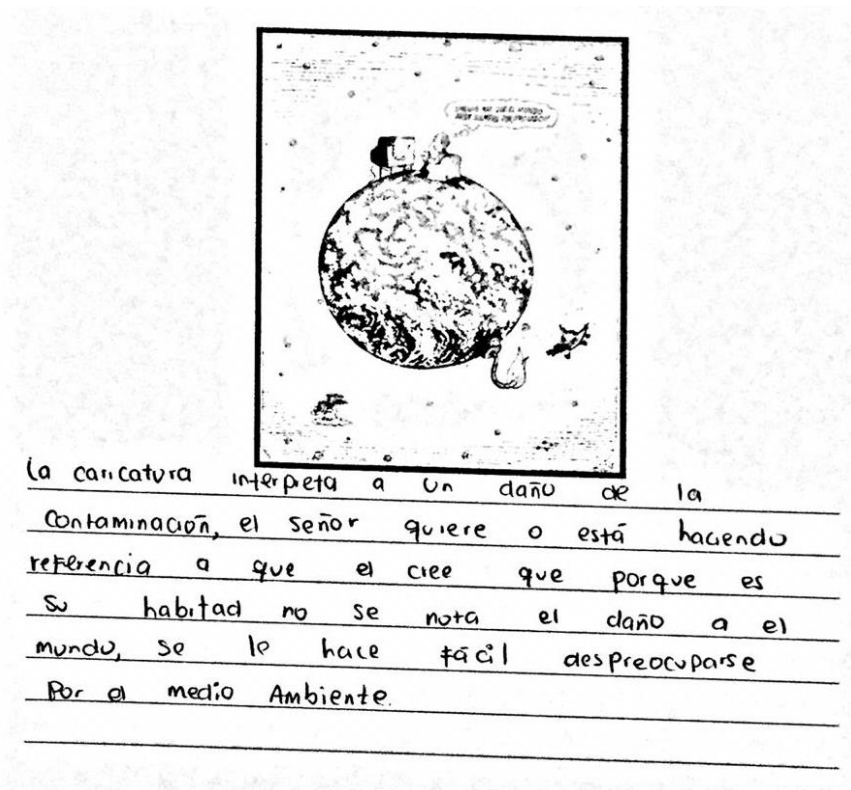 la caricatura interpreta a un daño de la
contaminación, el señor quiere o está haciendo
referencia a que el cree que porque es
su habitad no se nota el daño a el
mundo, se le hace fácil despreocuparse
Por el medio Ambiente.